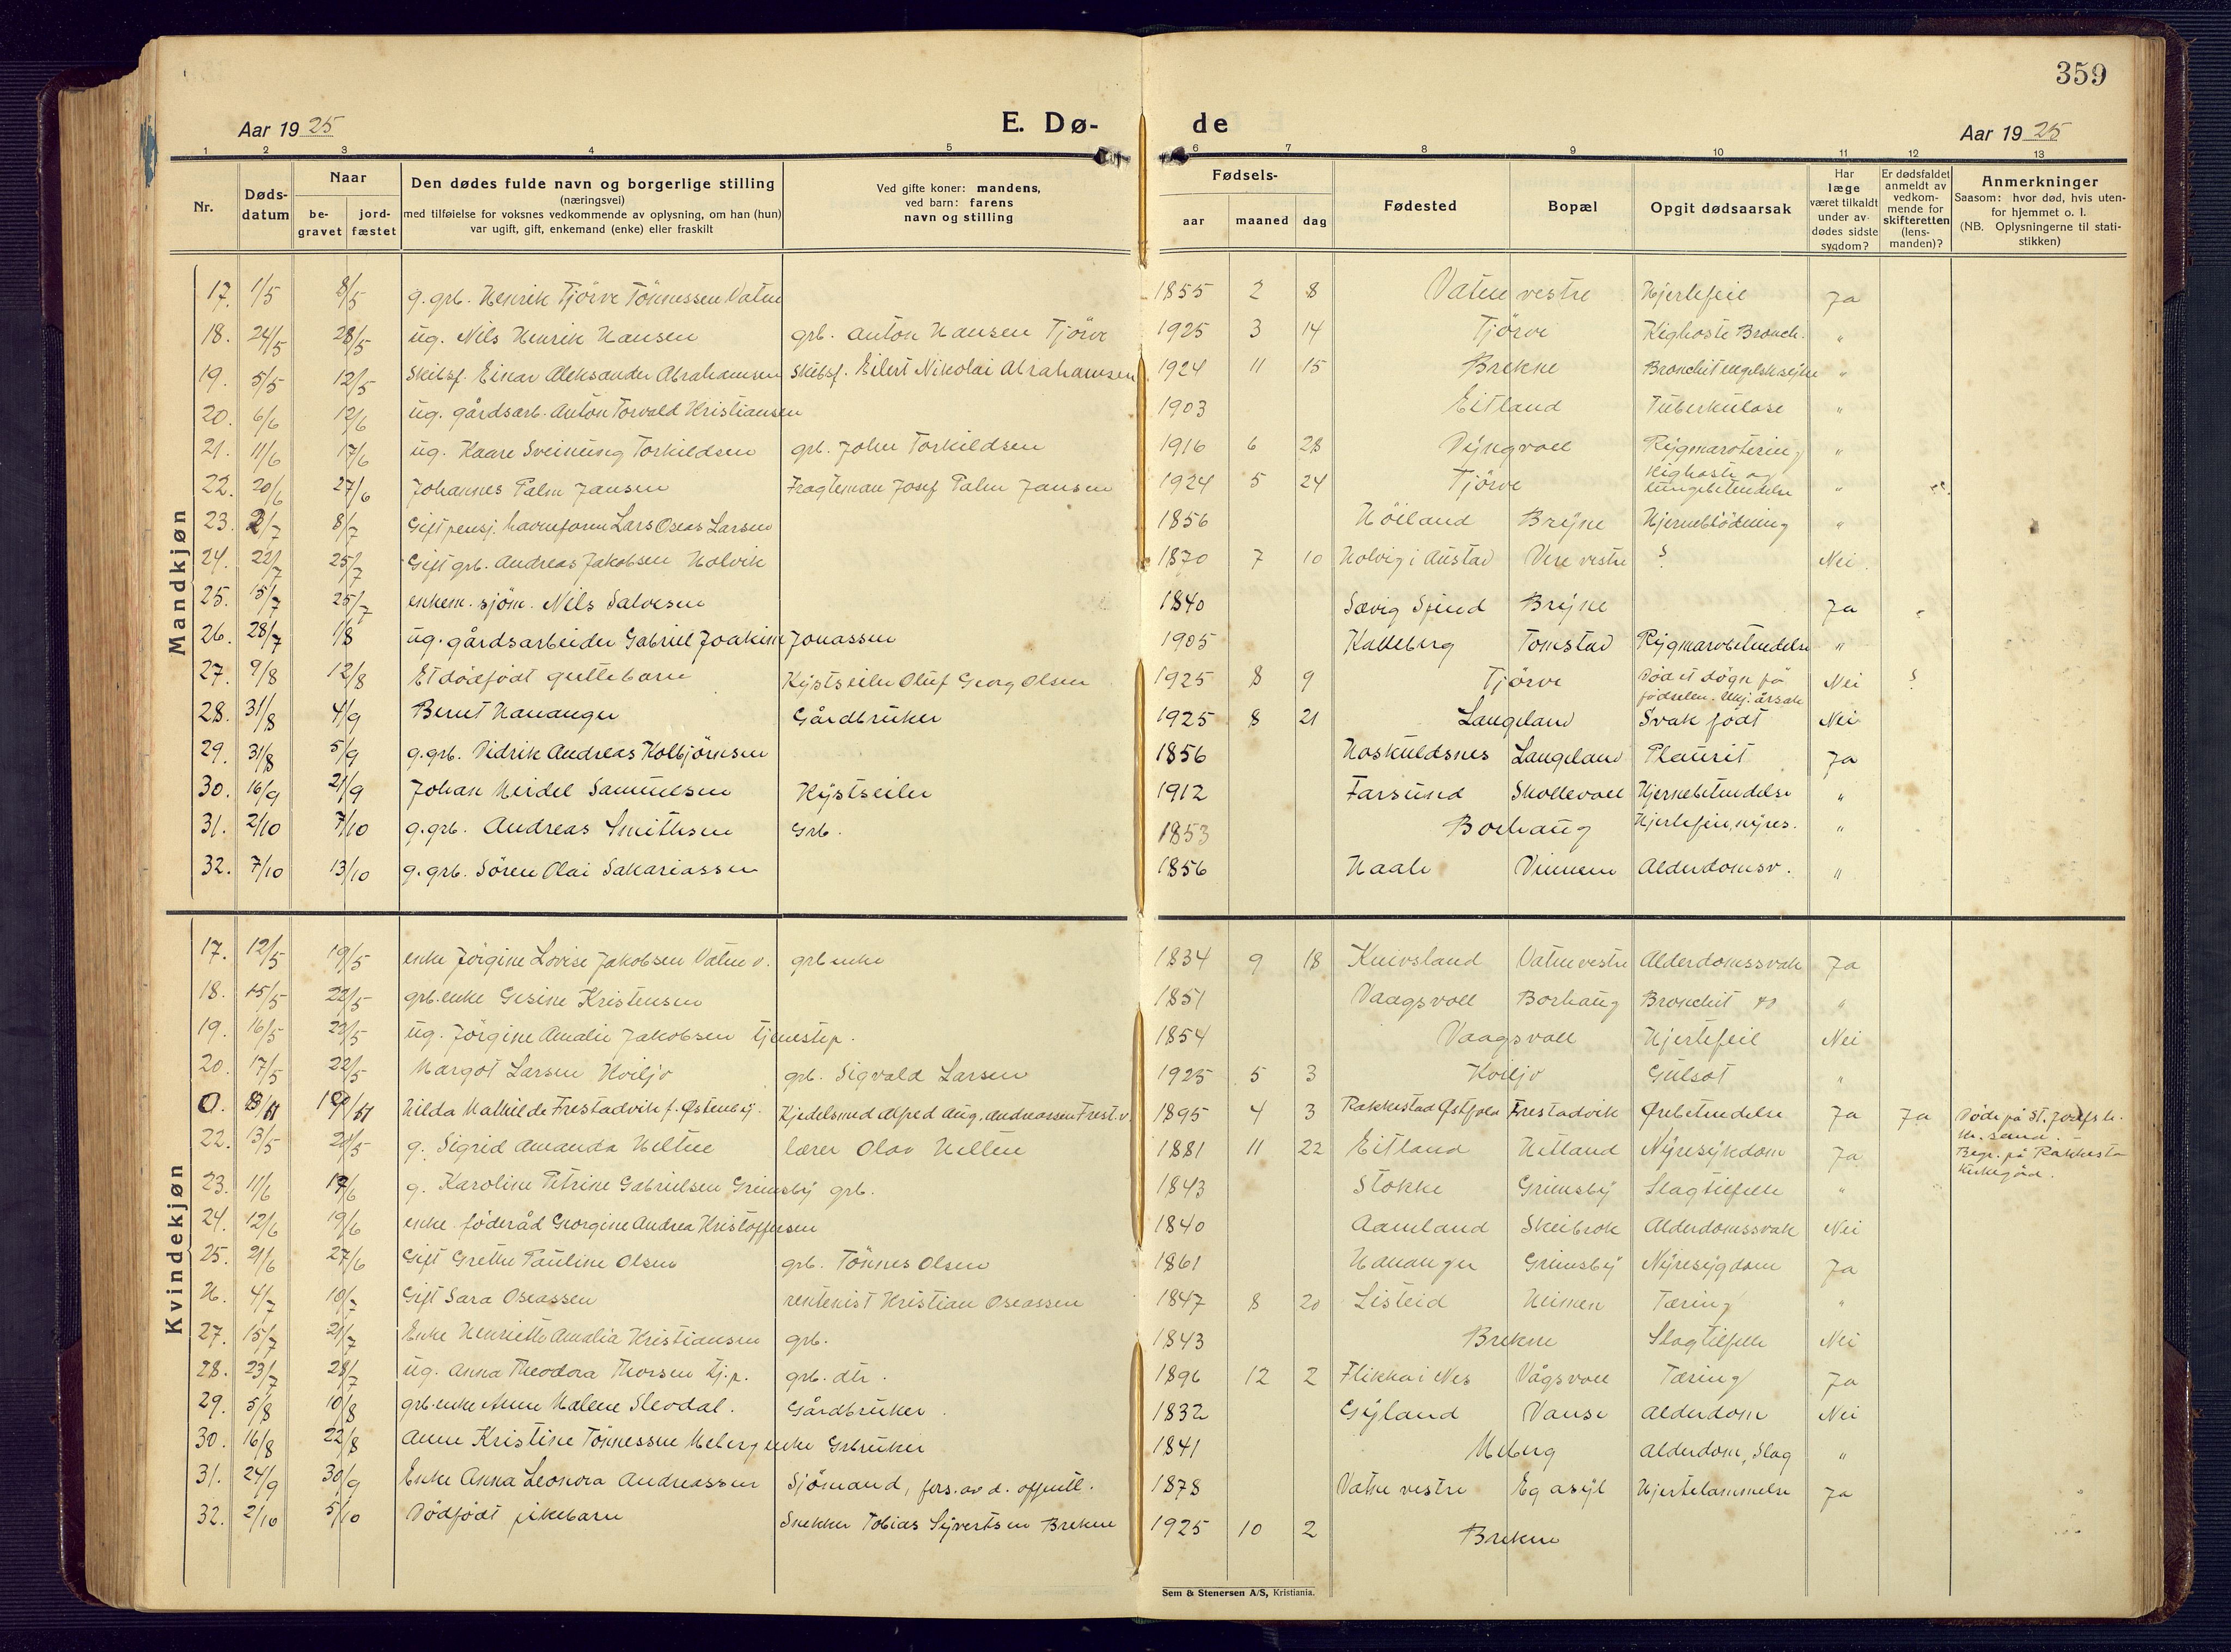 359
Aar 1925
E. Dø-
de
Aar 1925
1 2 3 4 5 6 7 8 9 10 11 12 13
Nr.
Døds-
datum
Naar
be-
gravet
jord-
fæstet
Den dødes fulde navn og borgerlige stilling
(næringsvei)
med tilføielse for voksnes vedkommende av oplysning, om han (hun)
var ugift, gift, enkemand (enke) eller fraskilt
Ved gifte koner: mandens,
ved barn: farens
navn og stilling
Fødsels-
aar
maaned
dag
Fødested
Bopæl
Opgit dødsaarsak
Har
læge
været tilkaldt
under av-
dødes sidste
sygdom?
Er dødsfaldet
anmeldt av
vedkom-
mende for
skifteretten
(lens-
manden)?
Anmerkninger
Saasom: hvor død, hvis uten-
for hjemmet o. l.
(NB. Oplysningerne til stati-
stikken)
Mandkjøn
17. 1/5 8/5 g. grb. Henrik Tjörve Tönnessen Vatne 1855 2 8 Vatne vestre Hjertefeil Ja
18. 24/5 28/5 ug. Nils Henrik Hansen grb. Anton Hansen Tjörve 1925 3 14 Tjörve Kighoste Bronch. "
19. 5/5 12/5 Skibsf. Einar Aleksander Abrahamsen Skibsf. Eilert Nikolai Abrahamsen 1924 11 15 Brekne Bronchit engelsk syke "
20. 6/6 12/6 ug. gårdsarb. Anton Torvald Kristiansen 1903 Eitland Tuberkulose "
21. 11/6 17/6 ug. Kaare Sveinung Torkildsen grb. John Torkildsen 1916 6 28 Dyngvoll "
22. 20/6 27/6 Johannes Palm Jansen Fragteman Josef Palm Jansen 1924 5 24 Tjörve Kighoste og
lungebetendelse "
23. 2/7 8/7 Gift pensj. havneform Lars Oseas Larsen 1856 Höiland Bryne Hjerneblödning "
24. 22/7 25/7 Gift grb. Andreas Jakobsen Holvik 1870 7 10 Holvig i Austad Vere vestre ? Nei
25. 15/7 25/7 enkem. sjöm. Nils Salvesen 1840 Sævig Spind Bryne Ja
26. 28/7 1/8 ug. gårdsarbeider Gabriel Joakim Jonassen 1905 Kalleberg Tomstad Rygmarvbetendelse "
27. 9/8 12/8 Et dödfödt guttebarn Kystseiler Oluf Georg Olsen 1925 8 9 Tjörve Död et dögn fø
fødselen. Ukj. årsak Nei ?
28. 31/8 4/9 Bernt Hananger Gårdbruker 1925 8 21 Langeland Svak født Nei
29. 31/8 5/9 g. grb. Didrik Andreas Kolbjörnsen 1856 Hoskuldsnes Langeland Plaurit Ja
30. 16/9 21/9 Johan Meidel Samuelsen Kystseiler 1912 Farsund Skollevoll Hjernebetendelse "
31. 2/10 7/10 g. grb. Andreas Smithsen Grb. 1853 Borhaug Hjertefeil, nyres. "
32. 7/10 13/10 g. grb. Sören Olai Sakariassen 1856 Haale Vinnem Alderdomsv. "
Kvindekjøn
17. 12/5 19/5 enke Jörgine Lovise Jakobsen Vatne v. grb enke 1834 9 18 Kneivsland Vatne vestre Alderdomssvak Ja
18. 15/5 22/5 grb. enke Gesine Kristensen 1851 Vaagsvoll Borhaug Bronchit "
19. 16/5 22/5 ug. Jörgine Amalie Jakobsen tjenestep. 1854 Vaagsvoll Hjertefeil Nei
20. 17/5 22/5 Margot Larsen Kviljo grb. Sigvald Larsen 1925 5 3 Kviljo Gulsot "
0. Hilda Mathilde Frestadvik f. Østenby. Kjedelsmed Alfred Aug. Andreassen Frest.v. 1895 4 3 Rakkestad Østfold Frestadvik Ørebetendelse Ja Ja Døde på St. Josefs h.
Kr.sand.
Begr. på Rakkesta
kirkegård.
22. 13/5 20/5 g. Sigrid Amanda Heltne lærer Olav Heltne 1881 11 22 Eitland Hetland Nyresykdom Ja
23. 11/6 17/6 g. Karoline Petrine Gabrielsen Grimsby grb. 1843 Stokke Grimsby Slagtilfelle "
24. 12/6 19/6 enke föderåd Georgine Andrea Kristoffersen 1840 Aamland Skeibrok Alderdomssvak Nei
25. 21/6 27/6 Gift Grethe Pauline Olsen grb. Tönnes Olsen 1861 Hananger Grimsby Nyresygdom Ja
26. 4/7 10/7 Gift Sara Oseassen rentenist Kristian Oseassen 1847 8 20 Listeid Heimen Tæring "
27. 15/7 21/7 Enke Henriette Amalia Kristiansen grb. 1843 Brekne Slagtilfelle Nei
28. 23/7 28/7 ug. Anna Theodora Thorsen tj.p. grb. dtr. 1896 12 2 Flikka i Nes Vågsvoll Tæring Ja
29. 5/8 10/8 grb. enke Anne Malene Slevdal. Gårdbruker. 1832 Gyland Vanse Alderdom Nei
30. 16/8 22/8 Anne Kristine Tönnessen Meberg enke Grbruker 1841 Meberg Alderdom, Slag "
31. 24/9 30/9 Enke Anna Leonora Andreassen Sjömand, fors. av d. offentl. 1878 Vatne vestre Eg asyl Hjertelammelse Ja
32. 2/10 5/10 Dödfödt pikebarn Snekker Tobias Syvertsen Brekne 1925 10 2 Brekne
Sem & Stenersen A/S, Kristiania.